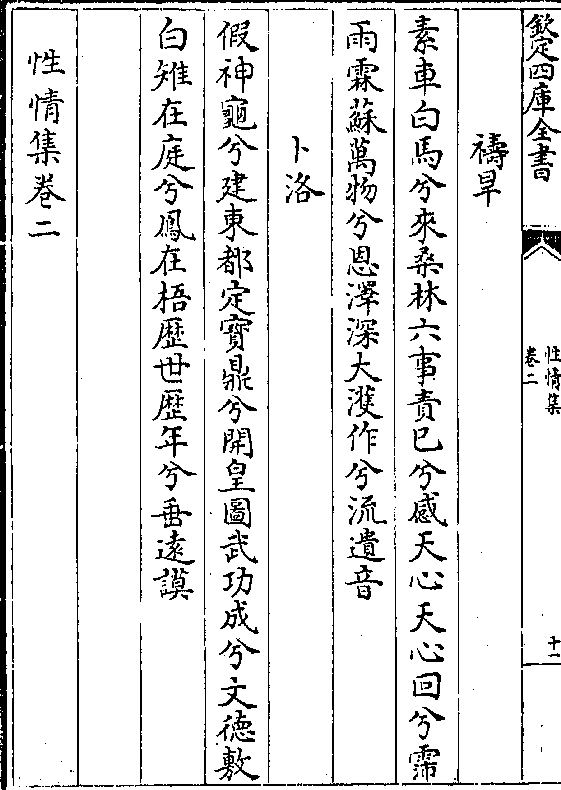 欽定四庫全書
性情集
卷二
十一
禱旱
素車白馬兮來桑林六事責已兮感天心天心回兮霈
雨霖蘇萬物兮恩澤深大濩作兮流遺音
卜洛
假神龜兮建東都定寶鼎兮開皇圖武功成兮文德敷
白雉在庭兮鳳在梧歴世歴年兮垂遠謨
性情集卷二